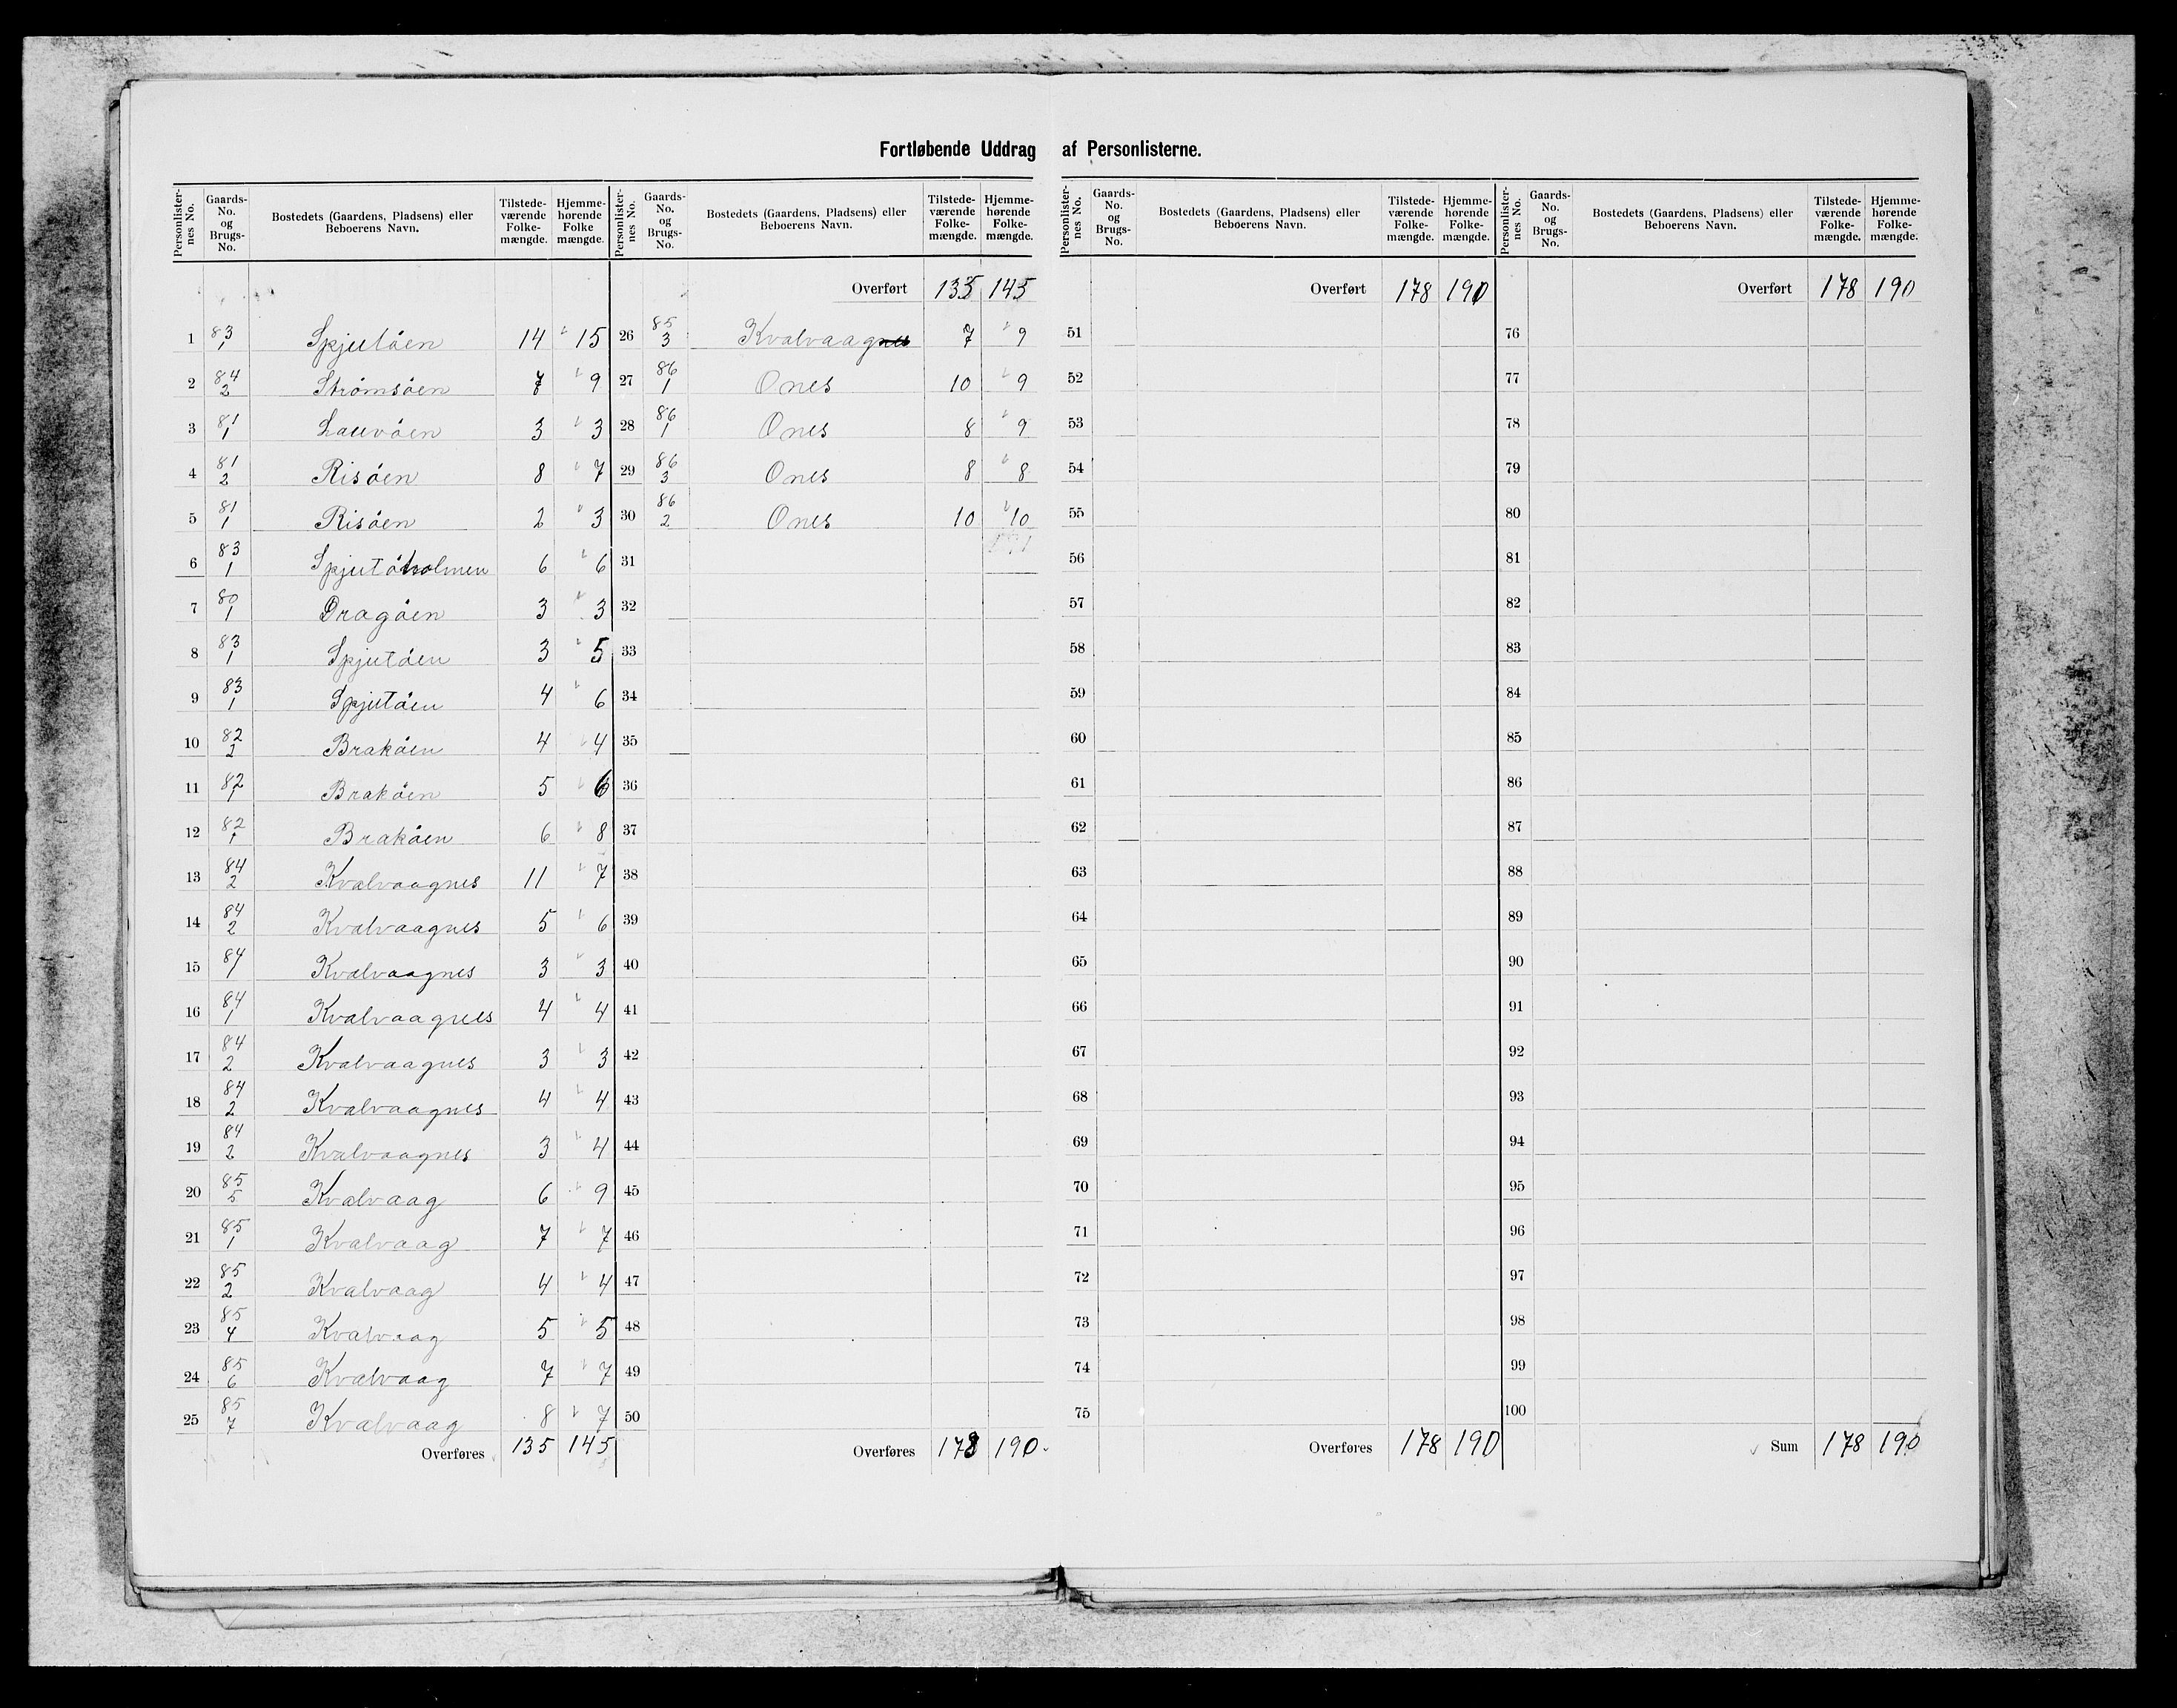 Fortløbende Uddrag af Personlisterne.
Personlister-nes No. | Gaards-No. og Brugs-No. | Bostedets (Gaardens, Pladsens) eller Beboerens Navn. | Tilstede-værende Folke-mængde. | Hjemme-hørende Folke mængde.
1 83/1 Spjutöen 14 15
2 84/2 Strömsöen 7 9
3 81/1 Lauvöen 3 3
4 81/2 Risöen 8 7
5 81/1 Risöen 2 3
6 83/1 Spjutöholmen 6 6
7 80/1 Dragöen 3 3
8 83/1 Spjutöen 3 5
9 83/1 Spjutöen 4 6
10 82/2 Braköen 4 4
11 82/1 Braköen 5 6
12 82/1 Braköen 6 8
13 84/2 Kvalvaagnes 11 7
14 84/2 Kvalvaagnes 5 6
15 84/1 Kvalvaagnes 3 3
16 84/1 Kvalvaagnes 4 4
17 84/2 Kvalvaagnes 3 3
18 84/2 Kvalvaagnes 4 4
19 84/2 Kvalvaagnes 3 4
20 85/5 Kvalvaag 6 9
21 85/1 Kvalvaag 7 7
22 85/2 Kvalvaag 4 4
23 85/4 Kvalvaag 5 5
24 85/6 Kvalvaag 7 7
25 85/7 Kvalvaag 8 7
Overføres 135 145
Personlister-nes No. | Gaards-No. og Brugs-No. | Bostedets (Gaardens, Pladsens) eller Beboerens Navn. | Tilstede-værende Folke-mængde. | Hjemme-hørende Folke-mængde.
Overført 135 145
26 85/3 Kvalvaag 7 9
27 86/1 Ones 10 9
28 86/1 Ones 8 9
29 86/3 Ones 8 8
30 86/2 Ones 10 10
31
32
33
34
35
36
37
38
39
40
41
42
43
44
45
46
47
48
49
50
Overføres 178 190
Personlister-nes No. | Gaards-No. og Brugs-No. | Bostedets (Gaardens, Pladsens) eller Beboerens Navn. | Tilstede-værende Folke-mængde. | Hjemme-hørende Folke-mængde.
Overført 178 190
51
52
53
54
55
56
57
58
59
60
61
62
63
64
65
66
67
68
69
70
71
72
73
74
75
Overføres 178 190
Personlister-nes No. | Gaards-No. og Brugs-No. | Bostedets (Gaardens, Pladsens) eller Beboerens Navn. | Tilstede-værende Folke-mængde. | Hjemme-hørende Folke-mængde.
Overført 178 190
76
77
78
79
80
81
82
83
84
85
86
87
88
89
90
91
92
93
94
95
96
97
98
99
100
Sum 178 190